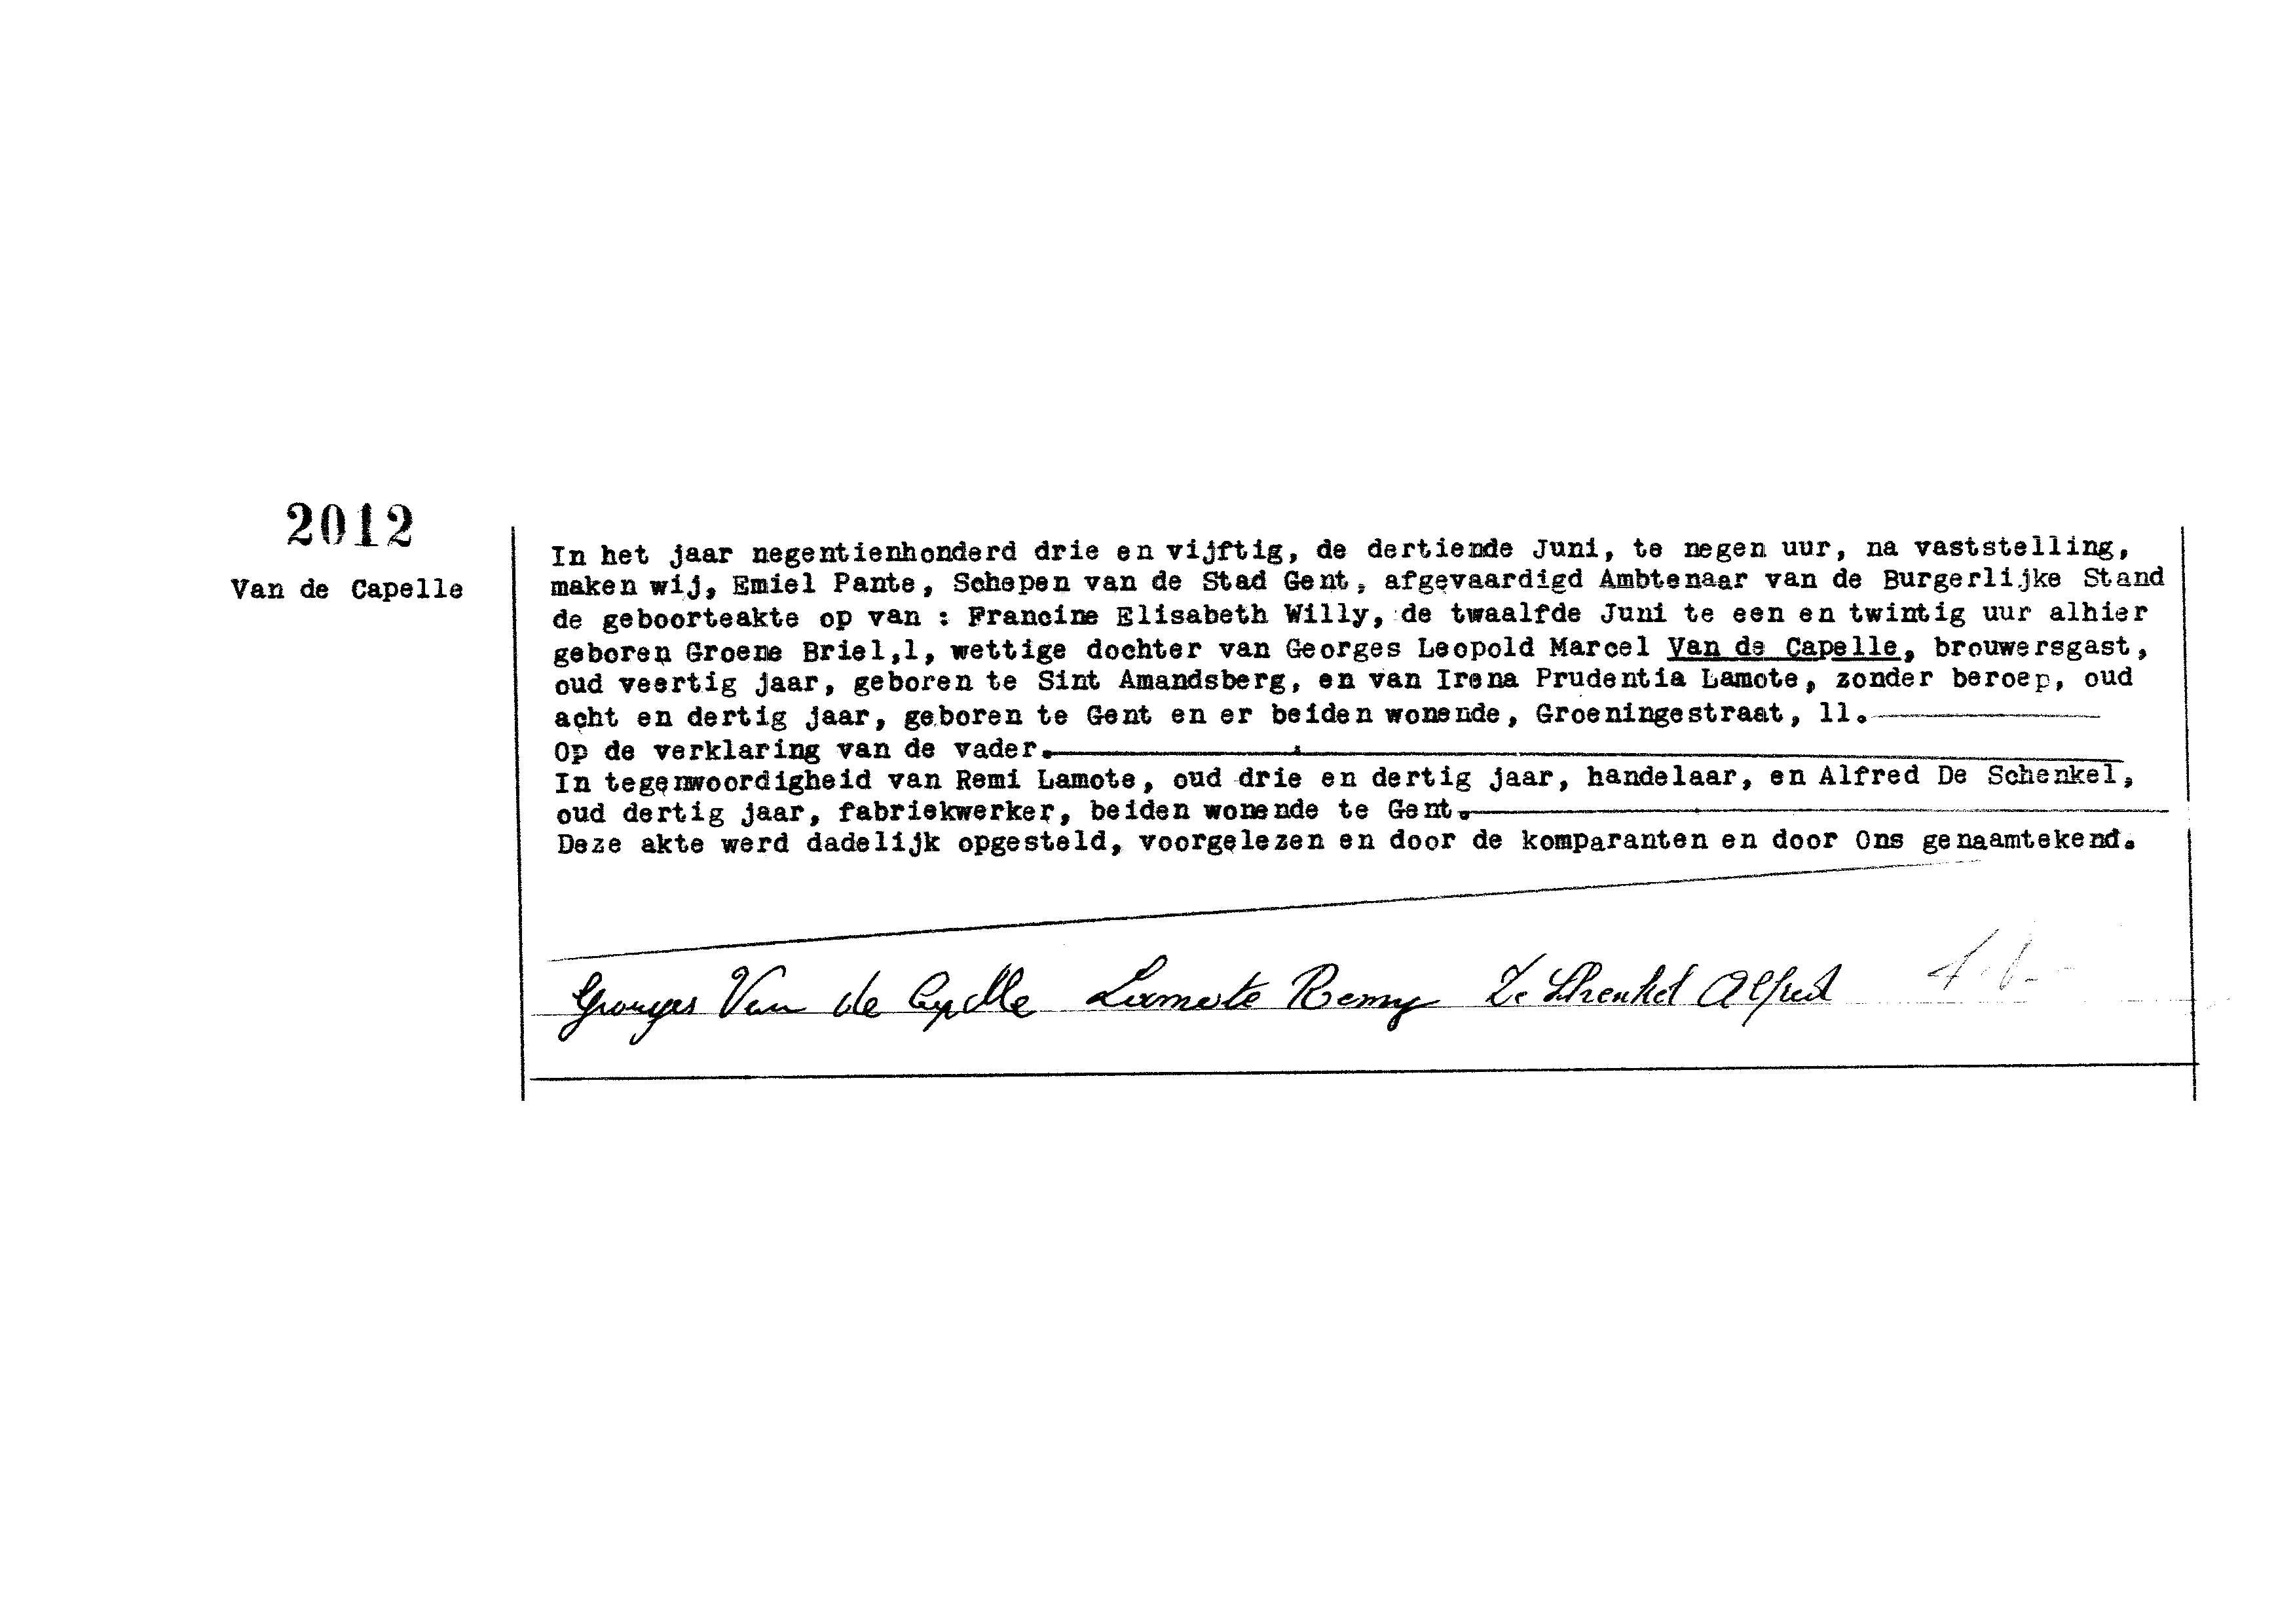 2012
Van de Capelle
In het jaar negentienhonderd drie en vijftig, de dertiende Juni, te negen uur, na vaststelling,
maken wij, Emiel Pante, Schepen van de Stad Gent, afgevaardigd Ambtenaar van de Burgerlijke Stand
de geboorteakte op van : Francine Elisabeth Willy, de twaalfde Juni te een en twintig uur alhier
geboren Groene Briel,1, wettige dochter van Georges Leopold Marcel Van de Capelle, brouwersgast,
oud veertig jaar, geboren te Sint Amandsberg, en van Irena Prudentia Lamote, zonder beroep, oud
acht en dertig jaar, geboren te Gent en er beiden wonende, Groeningestraat, 11.
Op de verklaring van de vader.
In tegenwoordigheid van Remi Lamote, oud drie en dertig jaar, handelaar, en Alfred De Schenkel,
oud dertig jaar, fabriekwerker, beiden wonende te Gent.
Deze akte werd dadelijk opgesteld, voorgelezen en door de komparanten en door Ons genaamtekend.
Georges Van de Capelle Lamote Remy De Schenkel Alfred